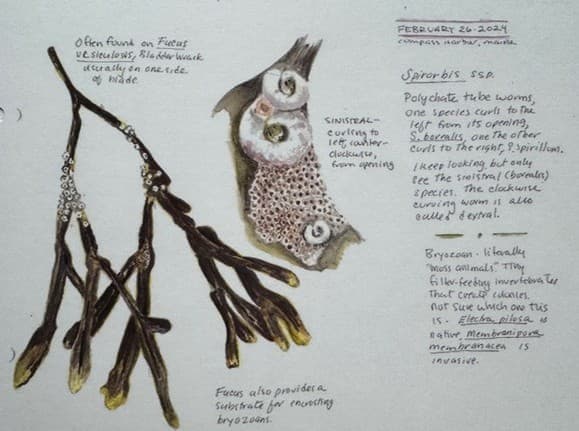 Often found on Fucus
vesiculosis, Bladder wrack
usually on one side
of blade
FEBRUARY 26·2024
compass harbor, maine
Spirorbis ssp.
Polychate tube worms,
one species curls to the
left from its opening,
S. borealis, one the other
curls to the right, S. spirillum.
I keep looking but only
see the sinistral (borealis)
species. The clockwise
curving worm is also
called dextral.
SINISTRAL-
curling to
left, counter-
clockwise,
from opening
Bryozoan - literally
"moss animals" Tiny
filter-feeding invertebrates
that create colonies.
Not sure which one this
is - Electra pilosa is
native, Membranipora
membranacea is
invasive.
Fucus also provides a
substrate for encrusting
bryozoans.